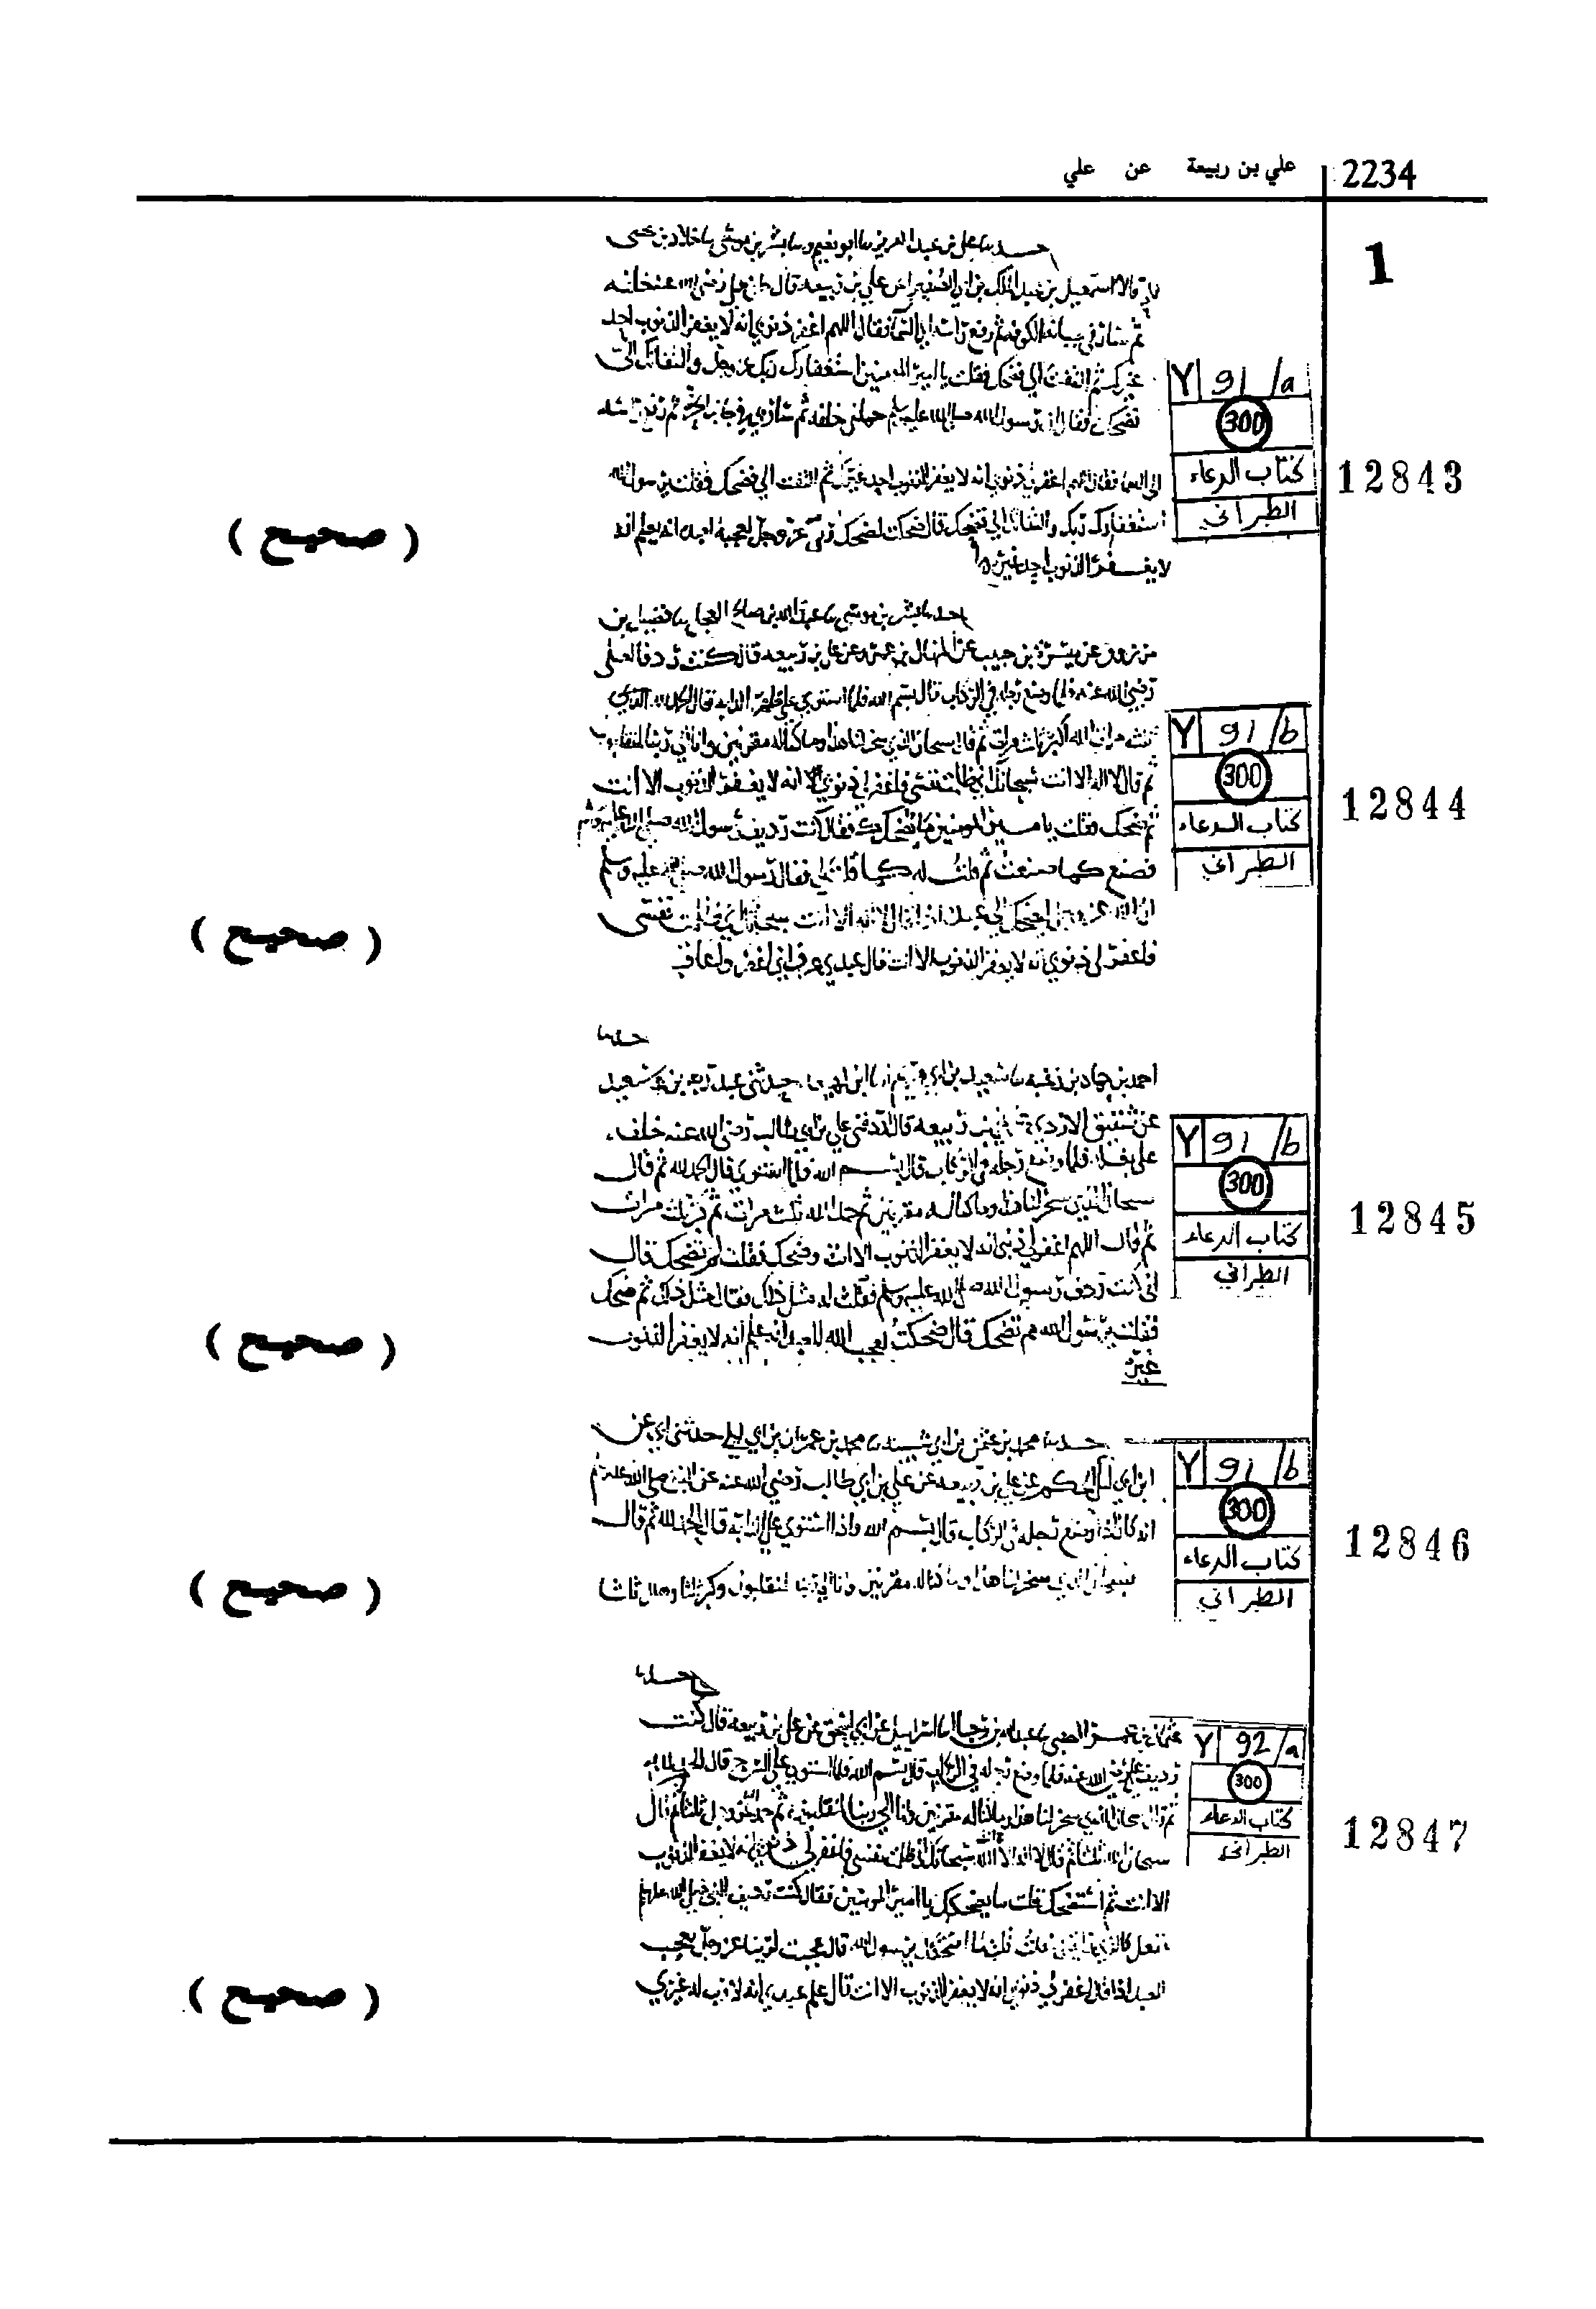 2234
علي بن ربيعة عن علي
1
حدثنا علي بن عبد العزيز ثنا ابو نعيم وثنا بشر بن موسى ثنا خلاد بن يحيى
قالا ثنا اسمعيل بن عبد الملك بن ابي الصفير عن علي بن ربيعه قال علي رضي الله عنه خلفه
ثم سار في الكوفه ثم رفع راسه الى السما فقال اللهم اغفر ذنوبي انه لا يغفر الذنوب احد
غيرك ثم التفت الي فضحك فقلت يا امير المومنين استغفارك ربك عز وجل والتفاتك الي
تضحك فقال ان رسول الله صلى الله عليه وسلم حملني خلفه ثم سار بي في جانب الحره ثم رفع راسه
الى السما فقال اللهم اغفر ذنوبي انه لا يغفر الذنوب احد غيرك ثم التفت الي فضحك فقلت يرسول الله
استغفارك ربك والتفاتك الي تضحك قال ضحكت لضحك ربي عز وجل لعجبه لعبده انه يعلم انه
لا يغفر الذنوب احد غيره
Y 91/a
300
كتاب الدعاء
الطبراني
12843
( صحيح )
حدثنا بشر بن موسى ثنا عبد الله بن صالح العجلي ثنا فضيل بن
مرزوق عن ميسرة بن حبيب عن المنهال بن عمرو عن علي بن ربيعه قال كنت ردفا لعلي
رضي الله عنه فلما وضع رجله في الركاب قال بسم الله فلما استوى على ظهر الدابه قال الحمد لله الذي
ثلث مرات الله اكبر ثلث مرات ثم قال سبحان الذي سخر لنا هذا وما كنا له مقرنين وانا الى ربنا لمنقلبون
ثم قال لا اله الا انت سبحانك اني ظلمت نفسي فاغفر لي ذنوبي انه لا يغفر الذنوب الا انت
ثم ضحك فقلت يا امير المومنين ما يضحكك فقال كنت رديف رسول الله صلى الله عليه وسلم
فصنع كما صنعت ثم قلت له كما قلت لي فقال رسول الله صلى الله عليه وسلم
ان الله عز وجل ليضحك الى عبده اذا قال لا اله الا انت سبحانك اني ظلمت نفسي
فاغفر لي ذنوبي انه لا يغفر الذنوب الا انت قال عبدي عرف اني اغفر واعاقب
Y 91/b
300
كتاب الدعاء
الطبراني
12844
( صحيح )
حدثنا
احمد بن حماد بن زغبه ثنا سعيد بن ابي مريم انا ابن لهيعه حدثني عبد ربه بن سعيد
عن شقيق الازدي عن علي بن ربيعه قال اردفني علي بن ابي طالب رضي الله عنه خلفه
على بغلته فلما وضع رجله في الركاب قال بسم الله فلما استوى قال الحمد لله ثم قال
سبحان الذي سخر لنا هذا وما كنا له مقرنين ثم حمد الله ثلث مرات ثم كبر ثلث مرات
ثم قال اللهم اغفر لي ذنبي انه لا يغفر الذنوب الا انت وضحك فقلت لم تضحك قال
اني كنت ردف رسول الله صلى الله عليه وسلم فقلت له مثل ذلك فقال مثل ذلك ثم ضحك
فقلت يرسول الله مم تضحك قال ضحكت لعجب الله للعبد انه يعلم انه لا يغفر الذنوب
غيره
Y 91/b
300
كتاب الدعاء
الطبراني
12845
( صحيح )
حدثنا محمد بن عثمن بن ابي شيبه ثنا محمد بن عمران بن ابي ليلى حدثني ابي عن
ابن ابي ليلى عن الحكم عن علي بن ربيعه عن علي بن ابي طالب رضي الله عنه عن النبي صلى الله عليه وسلم
انه كان اذا وضع رجله في الركاب قال بسم الله واذا استوى على الدابه قال الحمد لله ثم قال
سبحان الذي سخر لنا هذا وما كنا له مقرنين وانا الى ربنا لمنقلبون وكبر ثلثا وهلل ثلثا
Y 91/b
300
كتاب الدعاء
الطبراني
12846
( صحيح )
حدثنا
عثمان بن عمر الضبي ثنا عبد الله بن رجا انا اسرائيل عن ابي اسحق عن علي بن ربيعه قال كنت
رديف علي رضي الله عنه فلما وضع رجله في الركاب قال بسم الله فلما استوى على السرج قال الحمد لله
ثم قال سبحان الذي سخر لنا هذا وما كنا له مقرنين وانا الى ربنا لمنقلبون ثم حمد الله عز وجل ثلثا ثم قال
سبحان الله ثلثا ثم قال لا اله الا الله سبحانك اني ظلمت نفسي فاغفر لي ذنوبي انه لا يغفر الذنوب
الا انت ثم استضحك قلت ما يضحكك يا امير المومنين فقال كنت رديف النبي صلى الله عليه وسلم
ففعل كالذي قلت ما اضحكك يرسول الله قال عجبت لربنا عز وجل يعجب
للعبد اذا قال اغفر لي ذنوبي انه لا يغفر الذنوب الا انت قال علم عبدي انه لا رب له غيري
Y 92/a
300
كتاب الدعاء
الطبراني
12847
( صحيح )